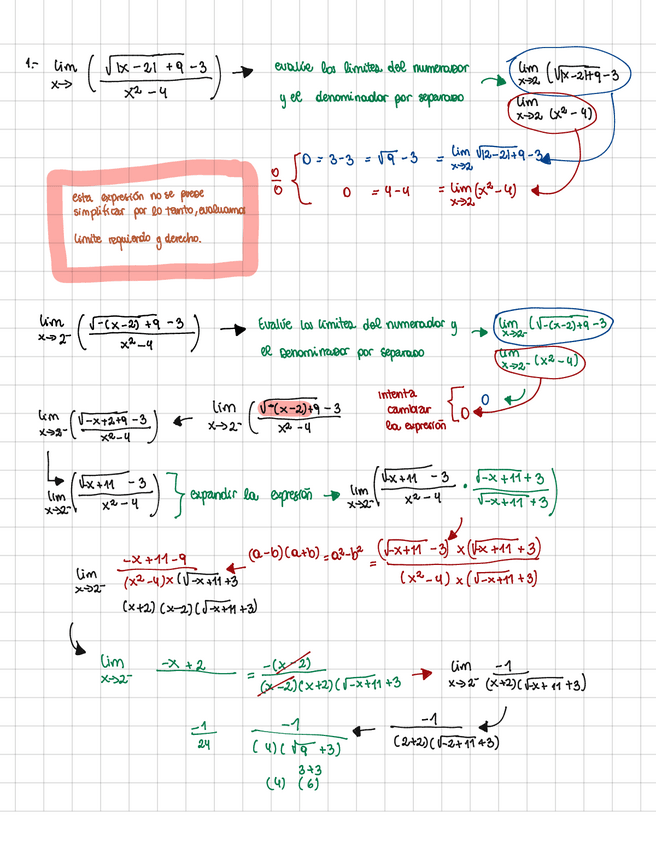 1.- lim x→ ( (√|x-2|+9 -3) / (x²-4) ) → evalúe los límites del numerador y el denominador por separado → lim x→2 (√|x-2|+9 -3
lim x→2 (x²-4)
0/0 { 0 = 3-3 = √9 -3 = lim x→2 √|2-2|+9 -3
0 = 4-4 = lim x→2 (x²-4)
esta expresión no se puede
simplificar por lo tanto, evaluamos
límite izquierdo y derecho.
lim x→2⁻ ( (√-(x-2)+9 -3) / (x²-4) ) → Evalúe los límites del numerador y el denominador por separado → lim x→2⁻ (√-(x-2)+9 -3
lim x→2⁻ (x²-4)
intenta cambiar la expresión { 0
0
lim x→2⁻ ( (√-x+2+9 -3) / (x²-4) ) ← lim x→2⁻ ( (√-(x-2)+9 -3) / (x²-4)
lim x→2⁻ ( (√-x+11 -3) / (x²-4) ) } expandir la expresión → lim x→2⁻ ( (√-x+11 -3) / (x²-4) · (√-x+11 +3) / (√-x+11 +3) )
lim x→2⁻ (-x+11-9) / ((x²-4)x(√-x+11 +3 ← (a-b)(a+b)=a²-b² = ((√-x+11 -3) x (√-x+11 +3)) / ((x²-4) x (√-x+11 +3))
(x+2)(x-2)(√-x+11 +3)
lim x→2⁻ -x+2 = -(x-2) / ((x-2)(x+2)(√-x+11 +3 → lim x→2⁻ -1 / ((x+2)(√-x+11 +3)
-1/24 -1 / ((4)(√9 +3) ← -1 / ((2+2)(√-2+11 +3)
3+3
(4) (6)